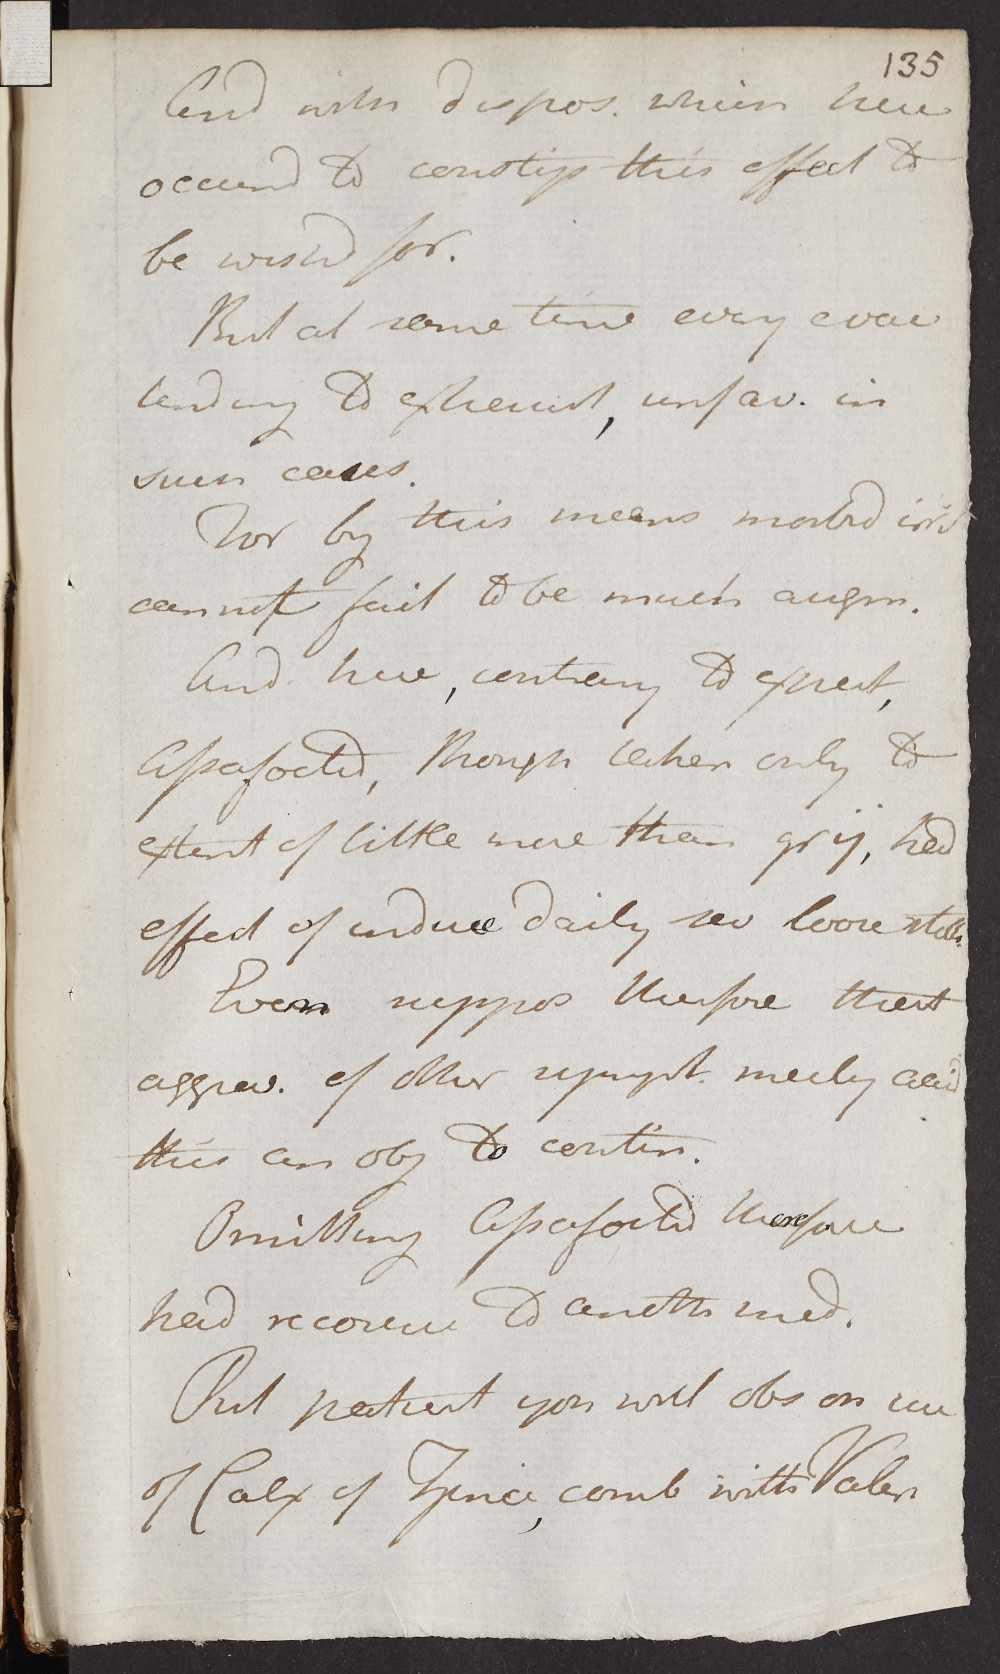 135
And with dispos. which here
occurred to constip this effect to
be wishd for.
But at same time every evac
tending to exhaust, unfav. in
such cases.
For by this means morbid irrit
cannot fail to be much augm.
And here, contrary to expect,
Assafoetid, though taken only to
extent of little more than gr ij, had
effect of induce daily sev loose stools.
Even suppos therefore that
aggrav. of other sympt. merely accid
this an obj to contin.
Omitting Assafoetid therefore
had recourse to anoth med.
Put patient you will obs on use
of Calx of Zinc, comb with Valer